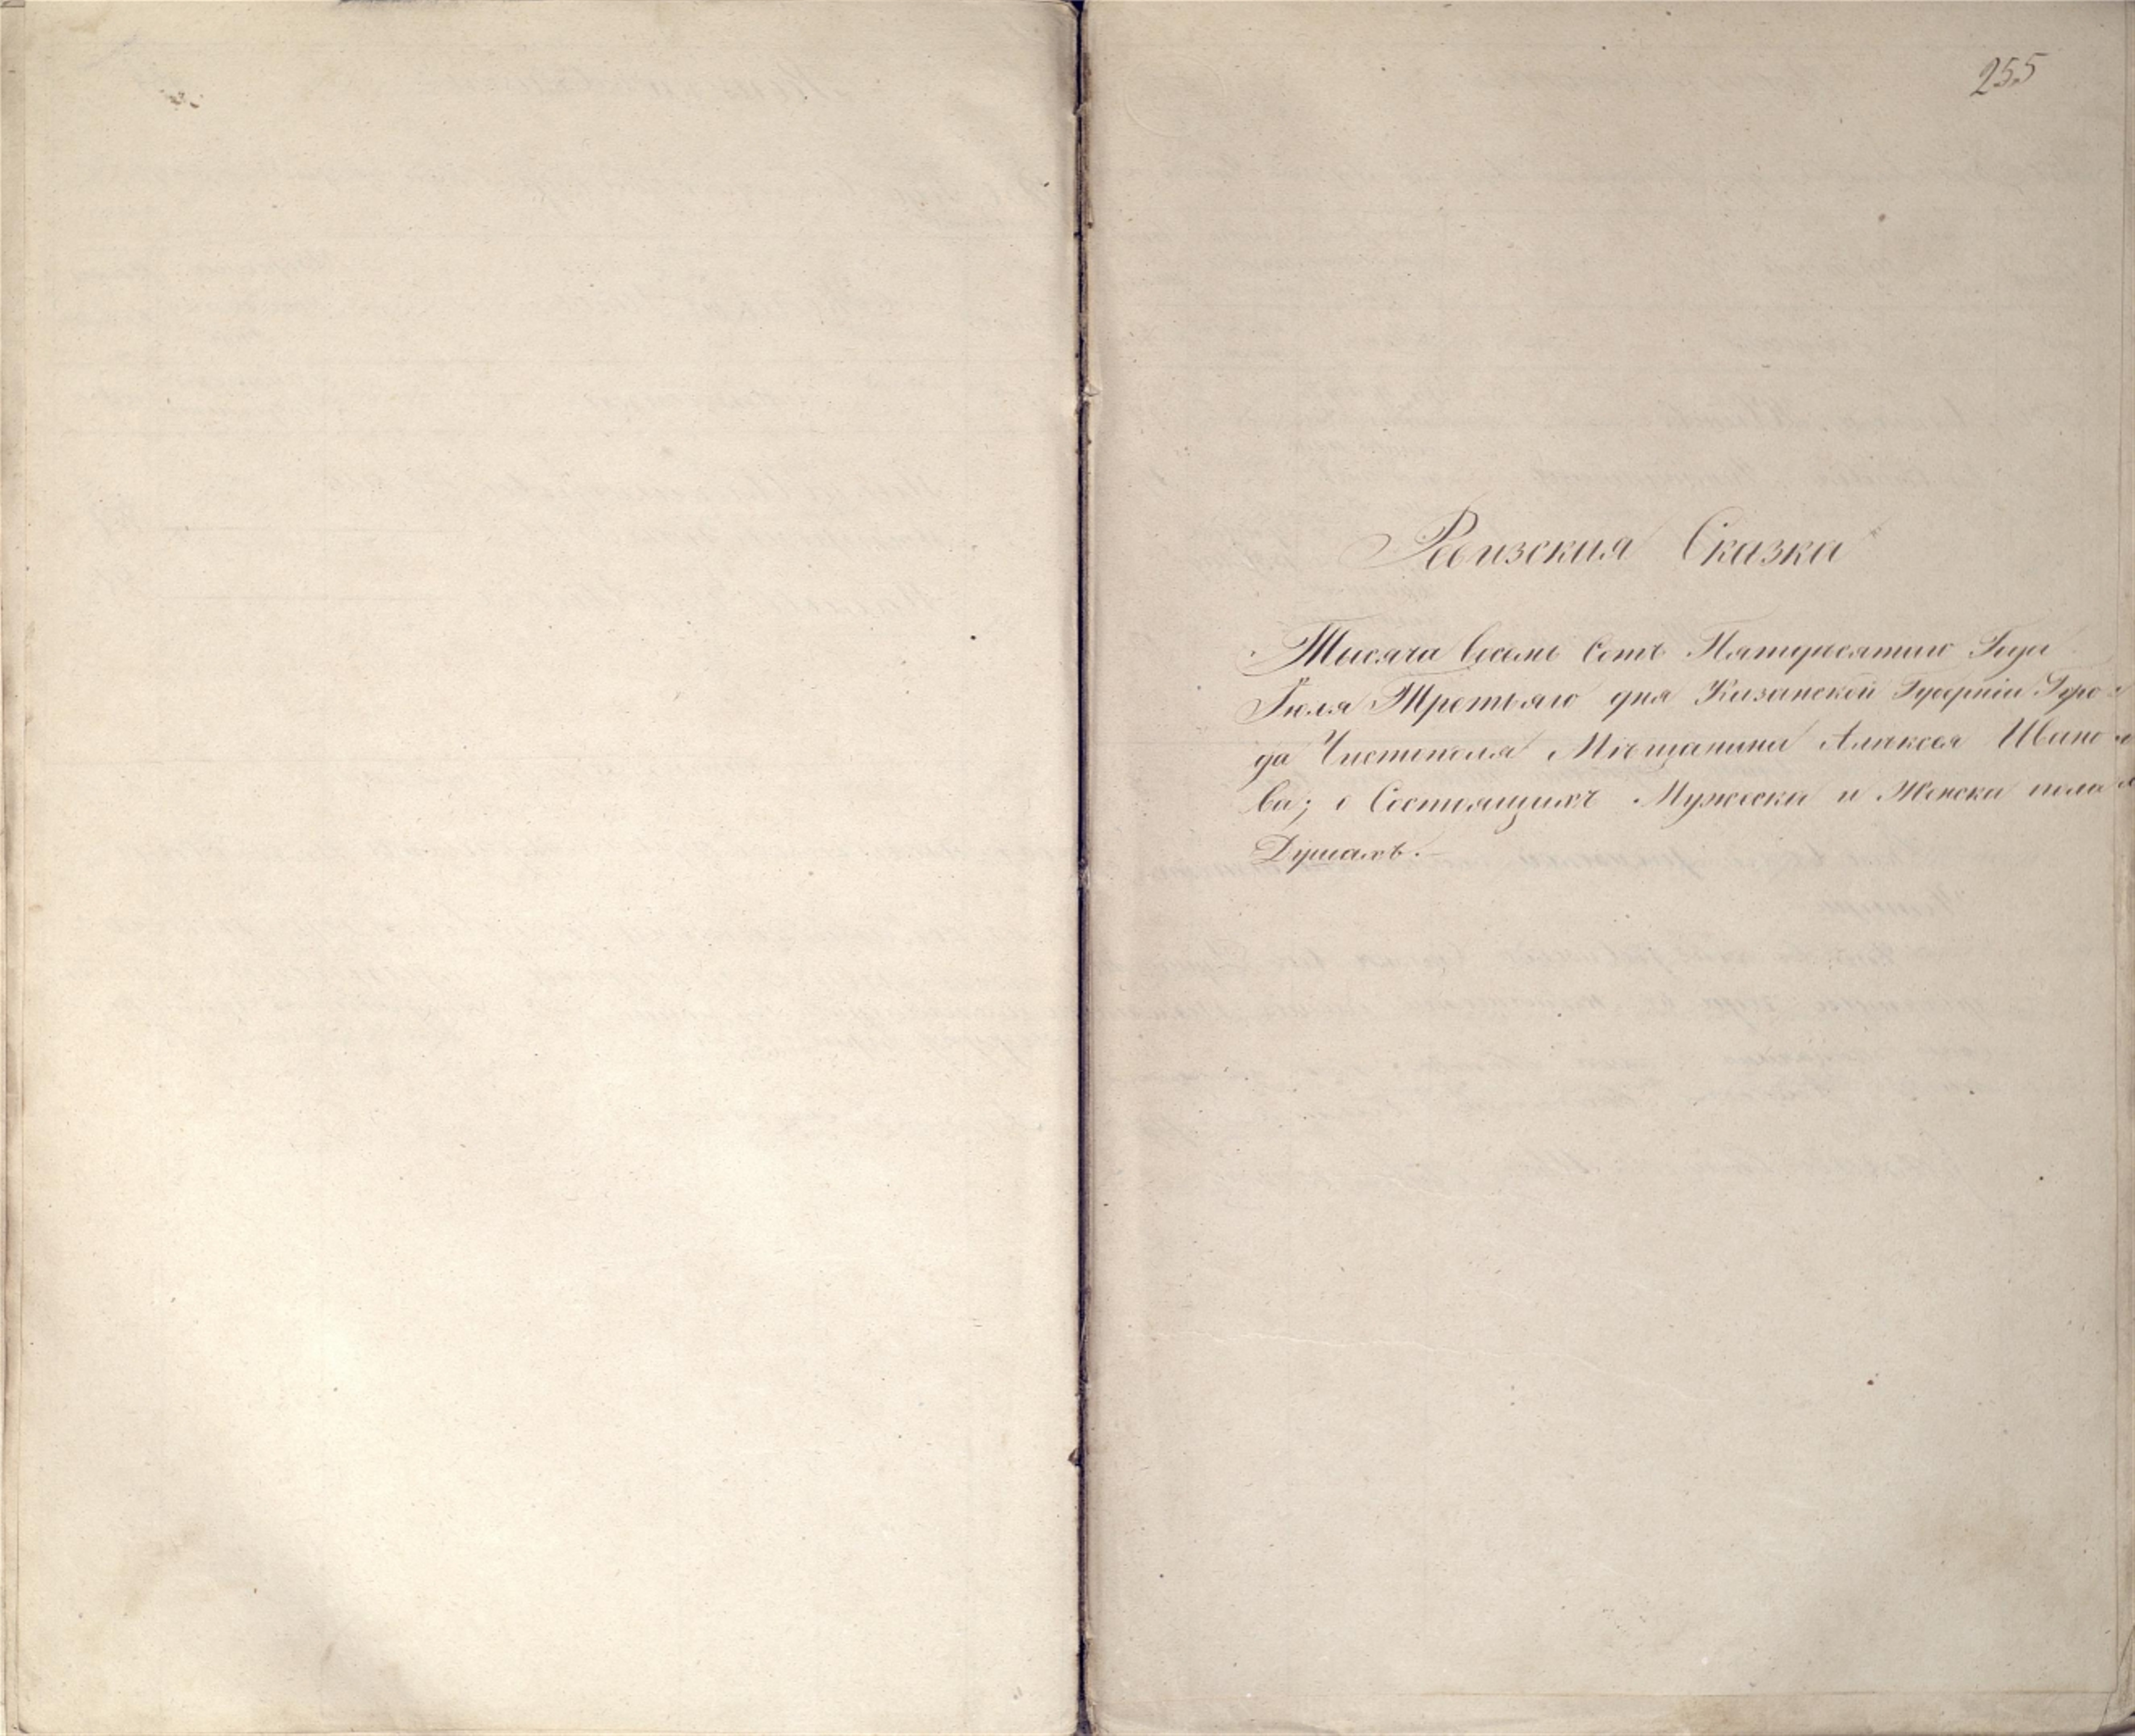 255
Ревизская Сказка
Тысяча восемь сотъ Пятидесятаго Года
Іюля Третьяго дня Казанской Губерніи Горо-
да Чистополя Мѣщанина Алексея Ивано-
ва; о Состоящихъ Мужеска и Женска пола
Душахъ.